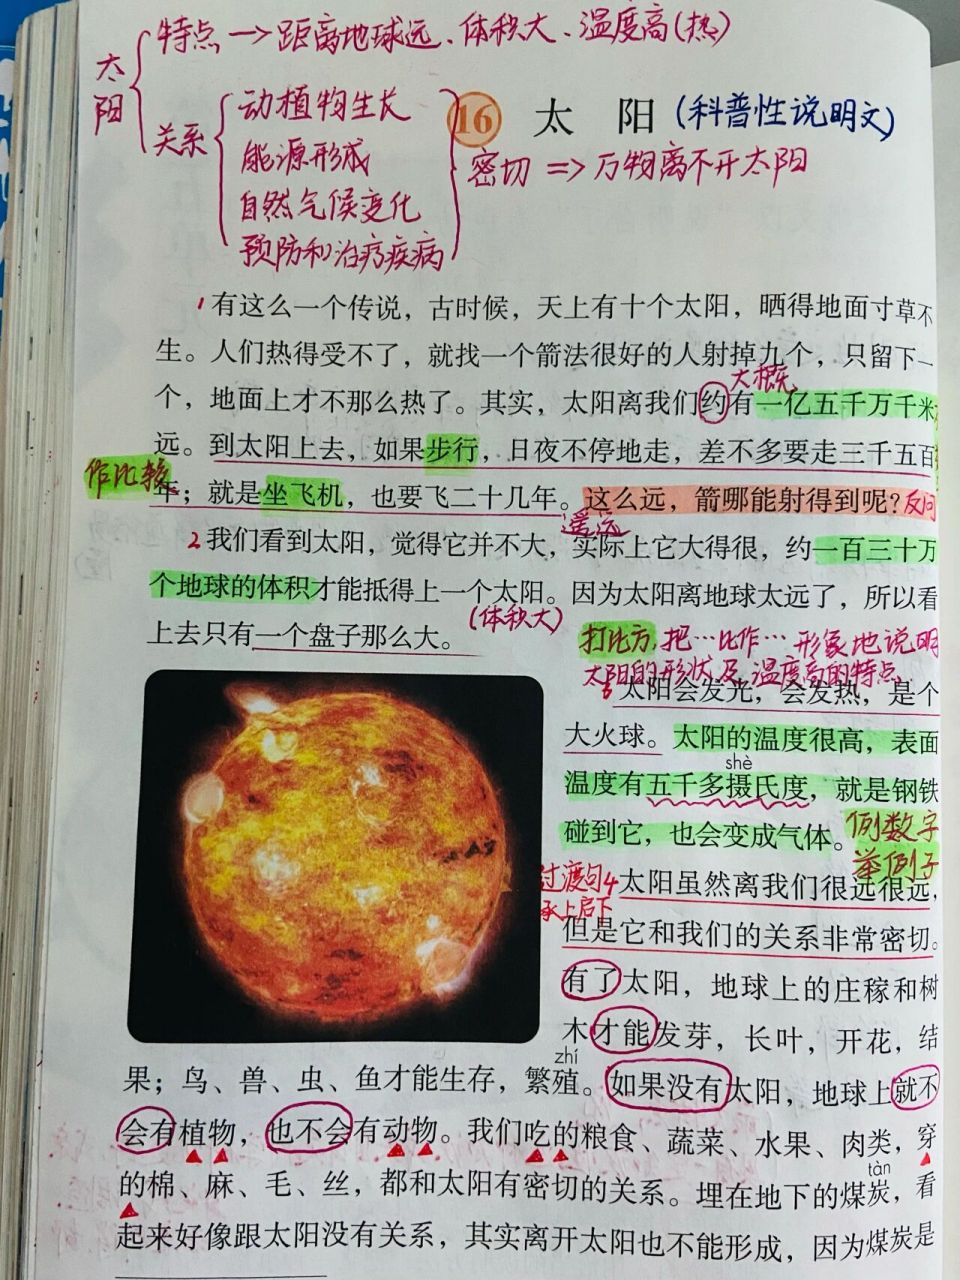 太阳
特点→距离地球远、体积大、温度高(热)
关系
动植物生长
能源形成
自然气候变化
预防和治疗疾病
密切=>万物离不开太阳
16 太 阳 (科普性说明文)
1 有这么一个传说，古时候，天上有十个太阳，晒得地面寸草不
生。人们热得受不了，就找一个箭法很好的人射掉九个，只留下一
大概
个，地面上才不那么热了。其实，太阳离我们约有一亿五千万千米
远。到太阳上去，如果步行，日夜不停地走，差不多要走三千五百
作比较
年；就是坐飞机，也要飞二十几年。这么远，箭哪能射得到呢？反问
遥远
2 我们看到太阳，觉得它并不大，实际上它大得很，约一百三十万
个地球的体积才能抵得上一个太阳。因为太阳离地球太远了，所以看
上去只有一个盘子那么大。(体积大)
打比方，把…比作…形象地说明
太阳的形状及温度高的特点
3 太阳会发光，会发热，是个
大火球。太阳的温度很高，表面
shè
温度有五千多摄氏度，就是钢铁
碰到它，也会变成气体。
列数字
举例子
过渡句
承上启下
4 太阳虽然离我们很远很远，
但是它和我们的关系非常密切。
有了太阳，地球上的庄稼和树
木才能发芽，长叶，开花，结
zhí
果；鸟、兽、虫、鱼才能生存，繁殖。如果没有太阳，地球上就不
会有植物，也不会有动物。我们吃的粮食、蔬菜、水果、肉类，穿
tàn
的棉、麻、毛、丝，都和太阳有密切的关系。埋在地下的煤炭，看
起来好像跟太阳没有关系，其实离开太阳也不能形成，因为煤炭是